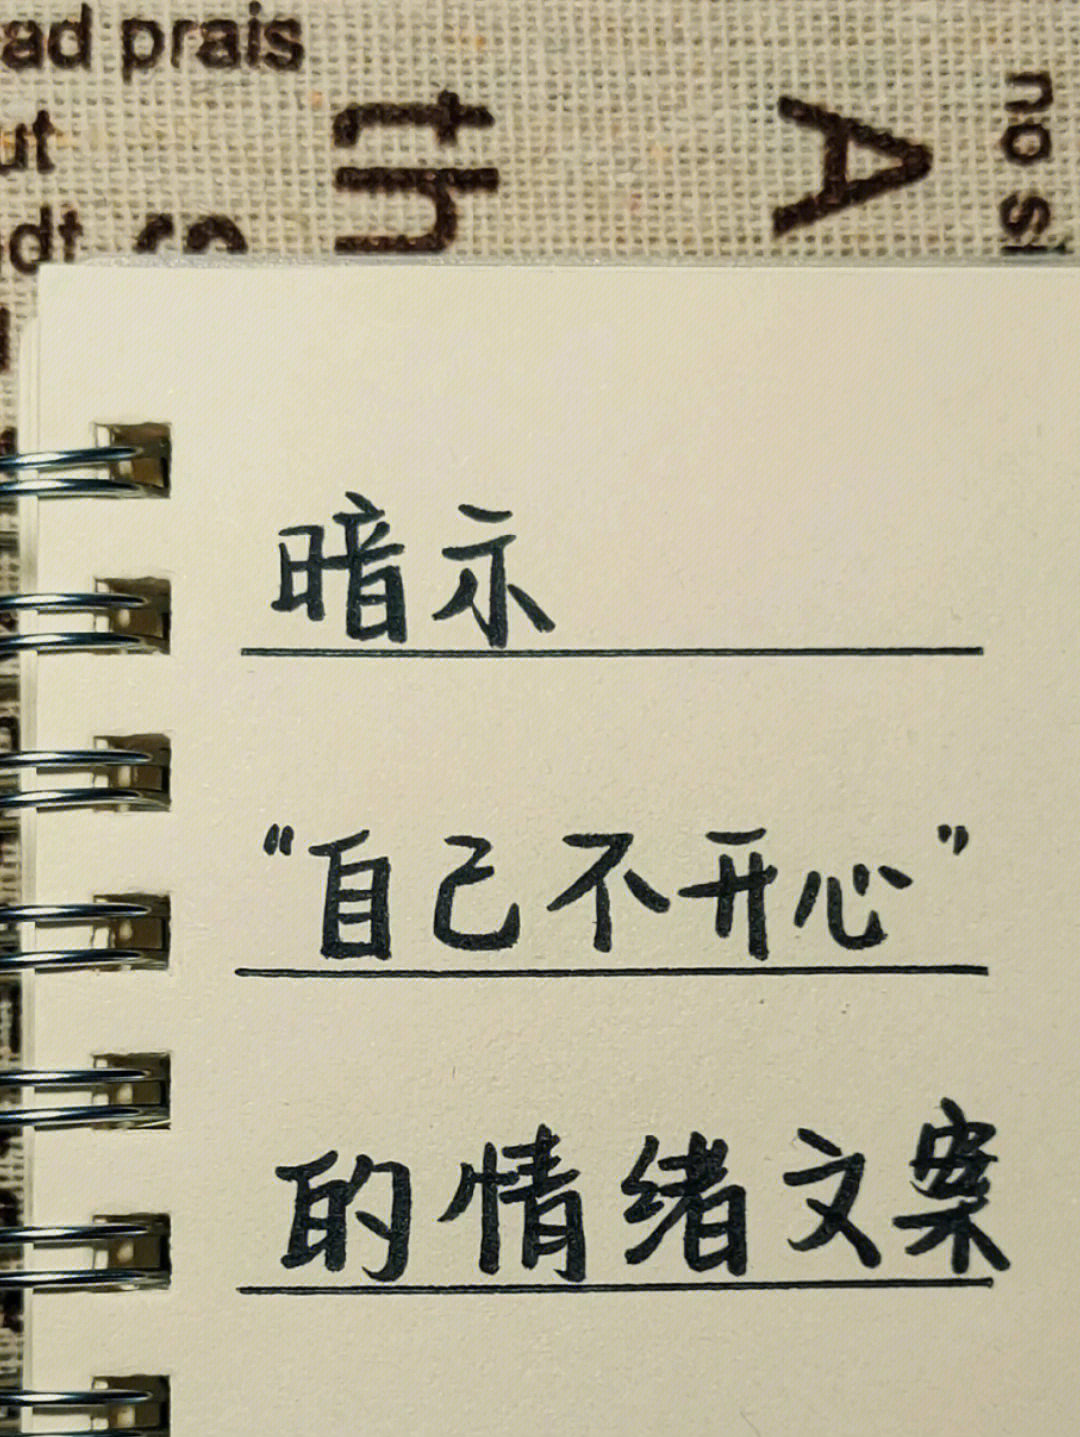 ad prais
ut
th
A
no si
暗示
“自己不开心”
的情绪文案